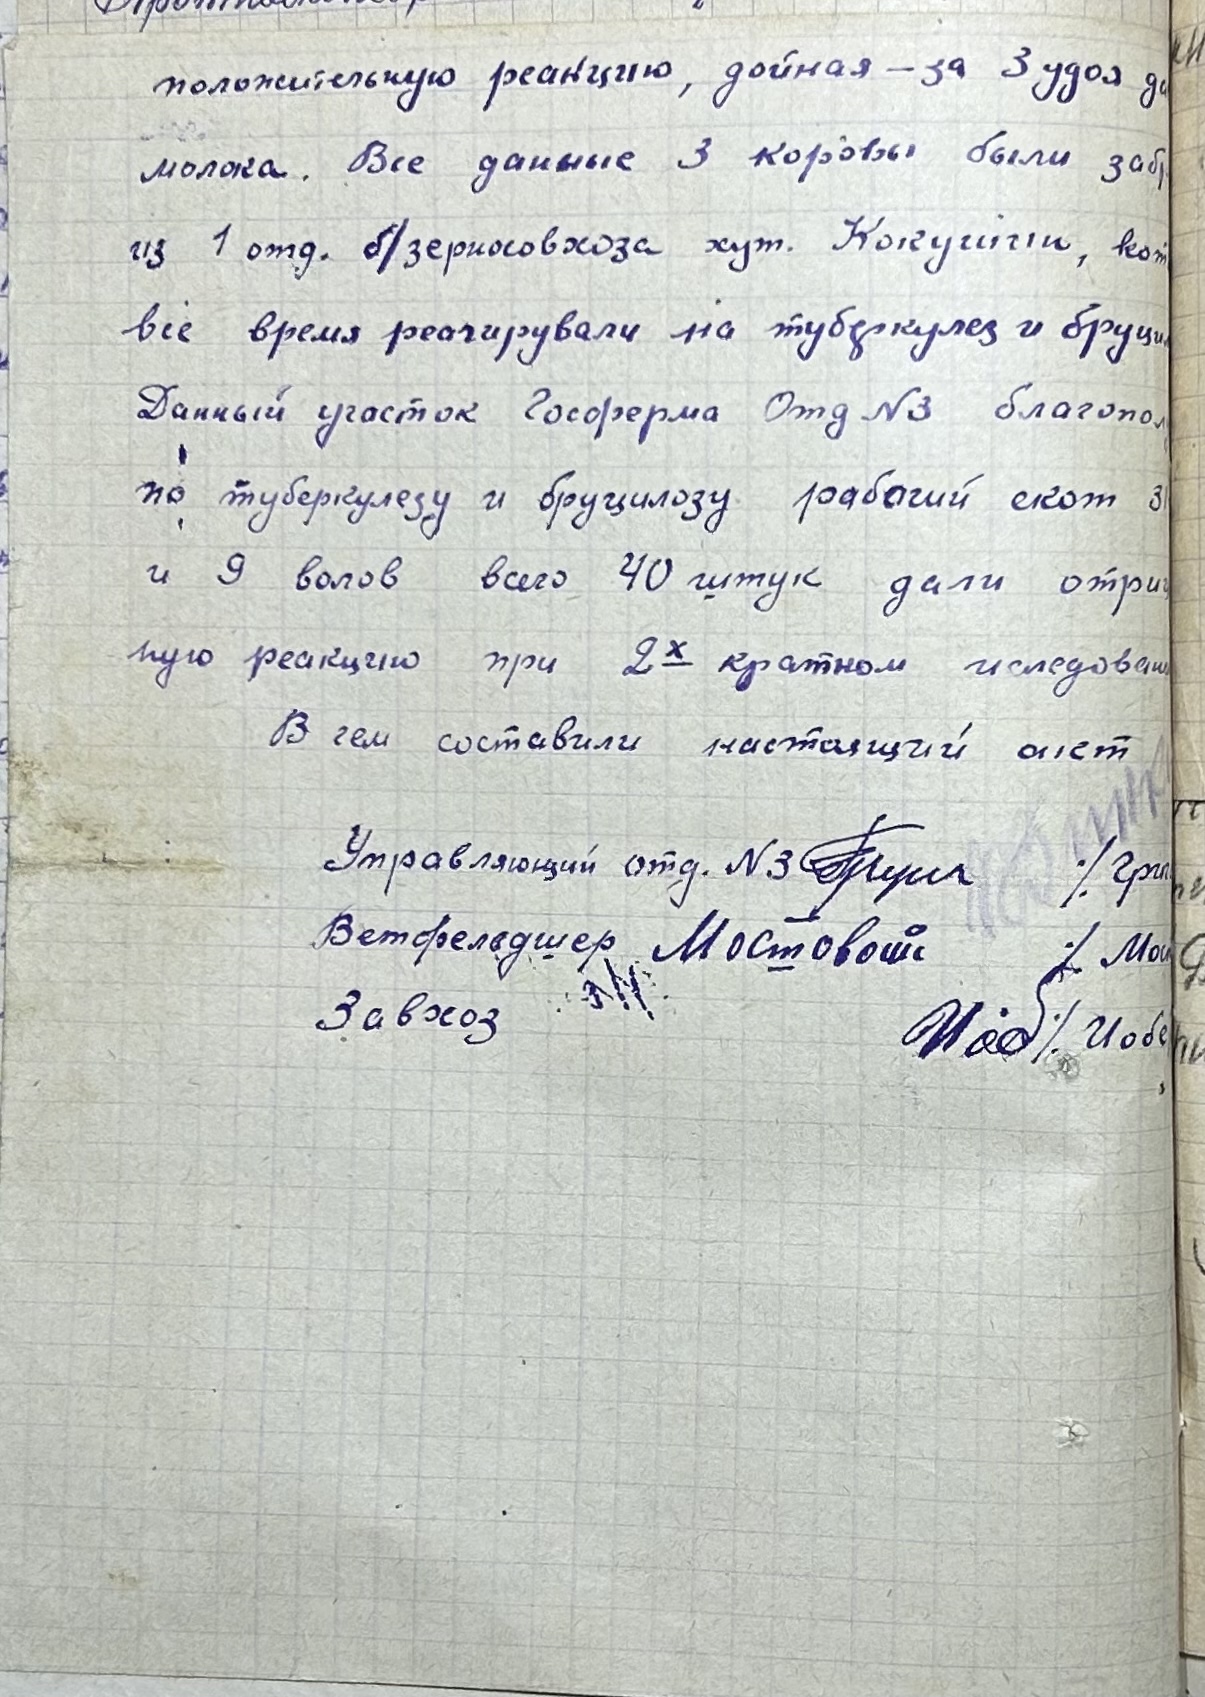 положительную реакцию, дойная – за 3 удоя да
молока. Все данные 3 коровы были забр
из 1 отд. б/зерносовхоза хут. Кокучичи, кот
все время реагирували на туберкулез и бруцил
Данный участок Госферма Отд N3 благопол
по туберкулезу и бруцилозу рабочий скот 31
и 9 волов всего 40 штук дали отриц
ную реакцию при 2х кратном иследован
В чем составили настоящий акт
Управляющий отд. N3 /. Гри
Ветфельдшер Мостовой /. Мос
Завхоз Иоб /. Иобе